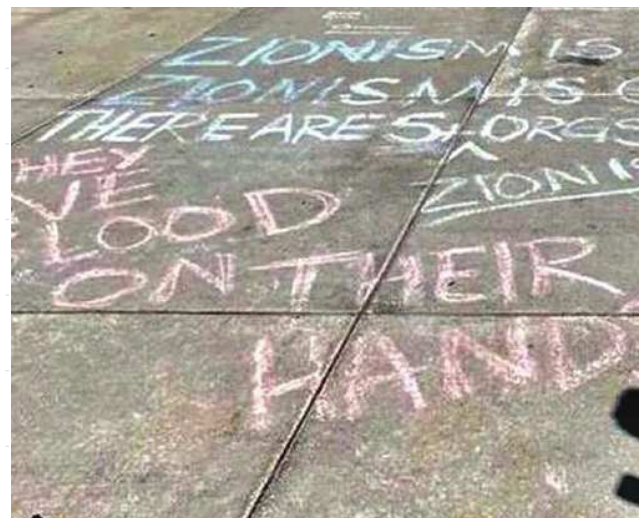 ZIONISM IS
ZIONISM IS
THERE ARE 5 ORGS
ZIONIS
THEY
VE
BLOOD
ON THEIR
HANDS